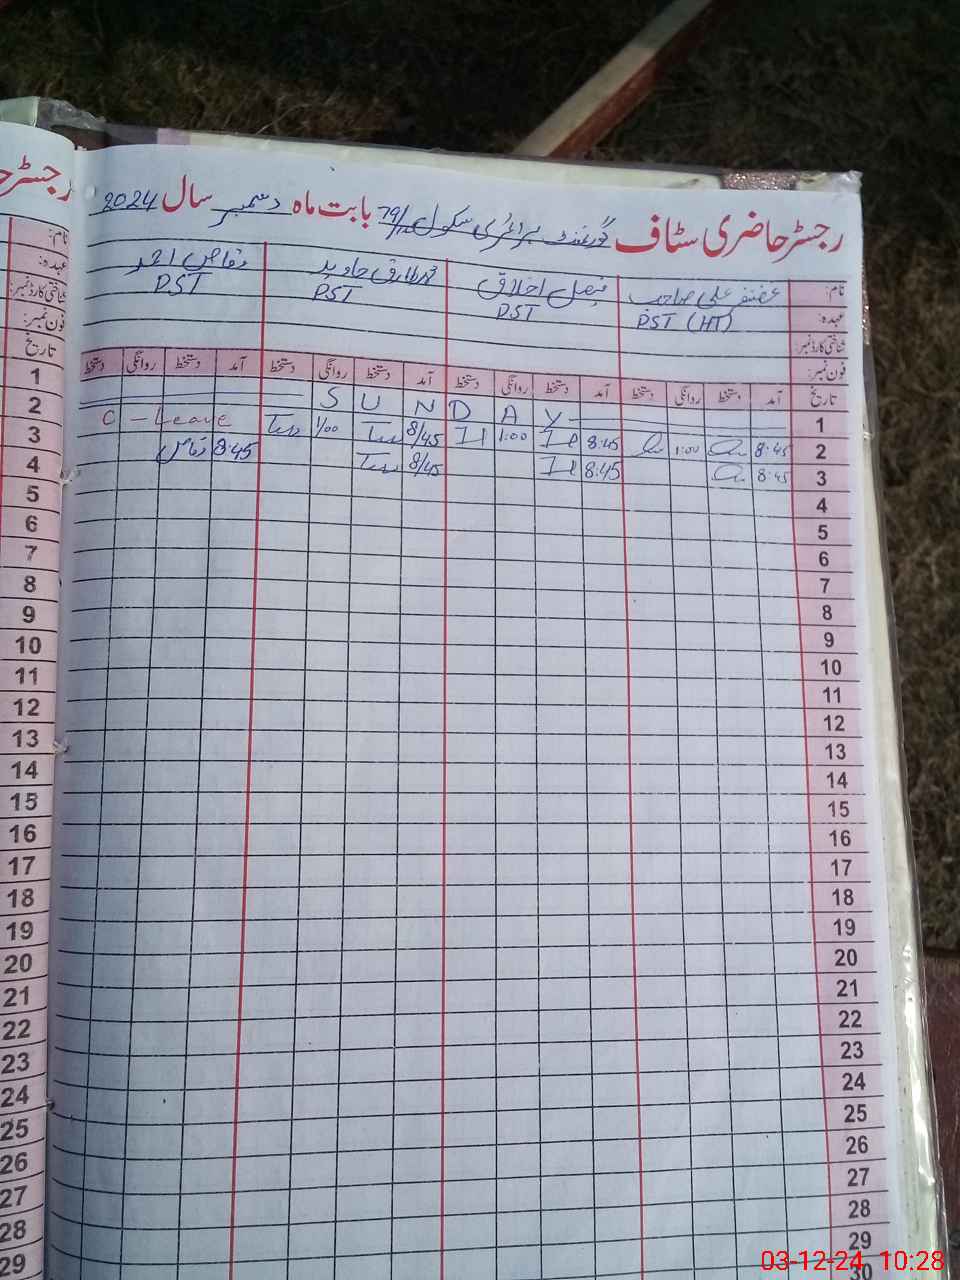 رجسٹر حاضری سٹاف گورنمنٹ پرائمری سکول 79/ بابت ماہ دسمبر سال 2024
نام: غضنفر علی صاحب فیصل اخلاق محمد طارق جاوید وقاص احمد
عہدہ: PST (HT) PST PST PST
شناختی کارڈ نمبر:
فون نمبر:
تاریخ آمد دستخط روانگی دستخط آمد دستخط روانگی دستخط آمد دستخط روانگی دستخط آمد دستخط روانگی دستخط
1 S U N D A Y
2 8:45 1:00 8:45 1:00 8/45 1/00 C - Leave
3 8:45 8:45 8/45 8:45 وقاص
4
5
6
7
8
9
10
11
12
13
14
15
16
17
18
19
20
21
22
23
24
25
26
27
28
29
30
رجسٹر
نام:
عہدہ:
شناختی کارڈ نمبر:
فون نمبر:
تاریخ
1
2
3
4
5
6
7
8
9
10
11
12
13
14
15
16
17
18
19
20
21
22
23
24
25
26
27
28
29
03-12-24 10:28